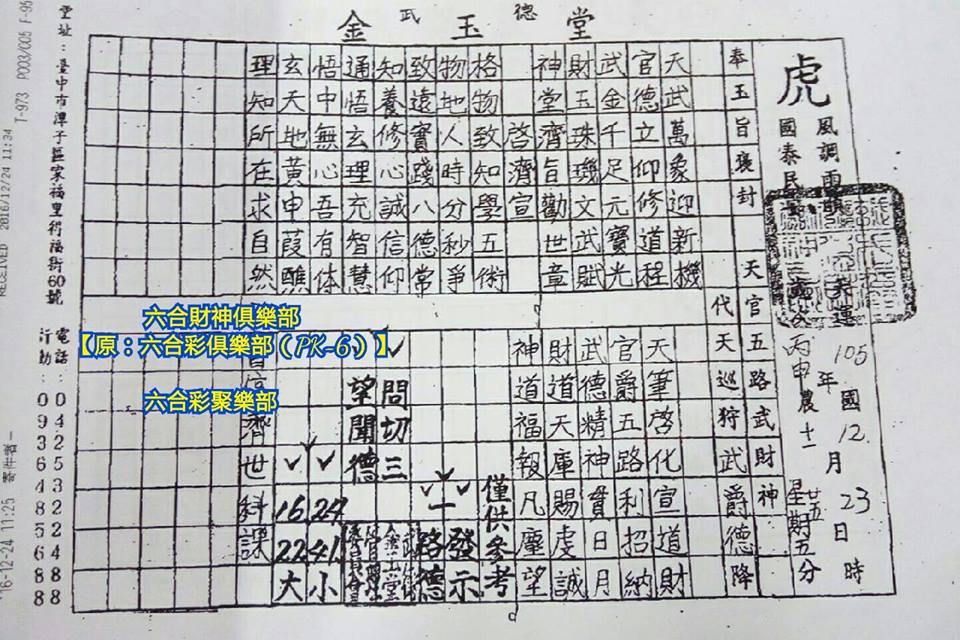 金武玉德堂
虎
風調雨順
國泰民安
天運
105國12月23日時
丙申年農十一廿五星期五分
奉玉旨褒封 天官五路武財神
代天巡狩武爵德降
天武萬象迎新機
官德立仰修道程
武金千足元寶光
財玉珠璣文武賦
神堂濟旨勸世章
啓濟宣
格物致知學五術
物地人時分秒爭
致遠實踐八德常
知養修心誠信仰
通悟玄理充智慧
悟中無心吾有体
玄天地黃申葭醮
理知所在求自然
天筆啓化宣道財
官爵五路利招納
武德精神貫日月
財道天庫賜虔誠
神道福報凡塵望
僅供參考
發示
一路德
問切三
望聞德
24 41 小
16 22 大
濟世科課
六合財神俱樂部
【原：六合彩俱樂部（PK-6）】
六合彩聚樂部
堂址：臺中市潭子區家福里衍福街60號
電話：0425322488
行動：0936485688
RECEIVED 2016/12/24 11:34
T-973 P003/005 F-95
'16-12-24 11:25 寄件者－